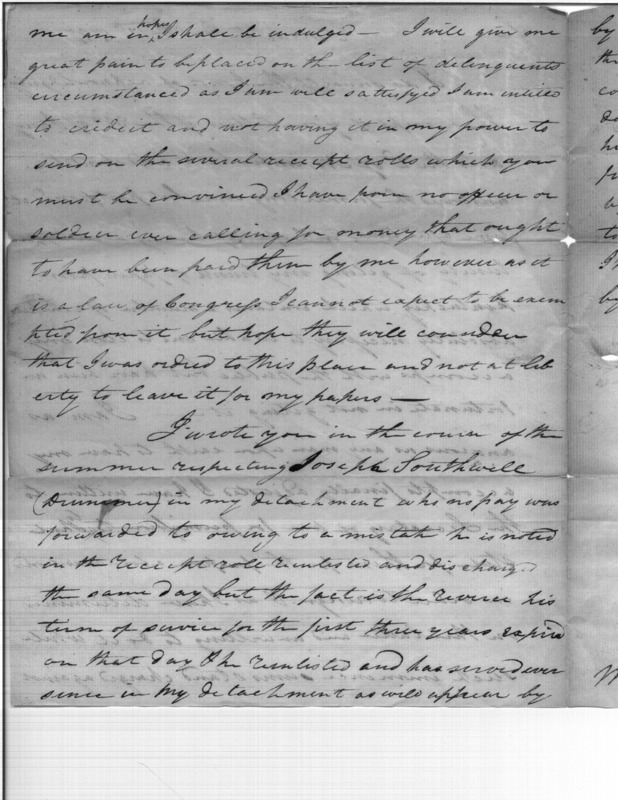 me am in hopes I shall be indulged — I will give me
great pain to be placed on the list of delinquents
circumstanced as I am will satisfyed I am intitled
to credit and not having it in my power to
send on the several receipt rolls which you
must be convinced I have from no officer or
soldier ever calling for money that ought
to have been paid them by me however as it
is a law of Congress I cannot expect to be exem
pted from it but hope they will consider
that I was ordred to this place and not at lib
erty to leave it for my papers —
I wrote you in the course of the
summer respecting Joseph Southwell
(Drummer) in my detachment who no pay was
forwarded to owing to a mistake he is noted
in the receipt roll reinlisted and discharged
the same day but the fact is the reverce his
term of service for the first three years expired
on that day & he reinlisted and has served ever
sence in my detachment as will appear by
by
th
co
do
h
fr
to
I
by